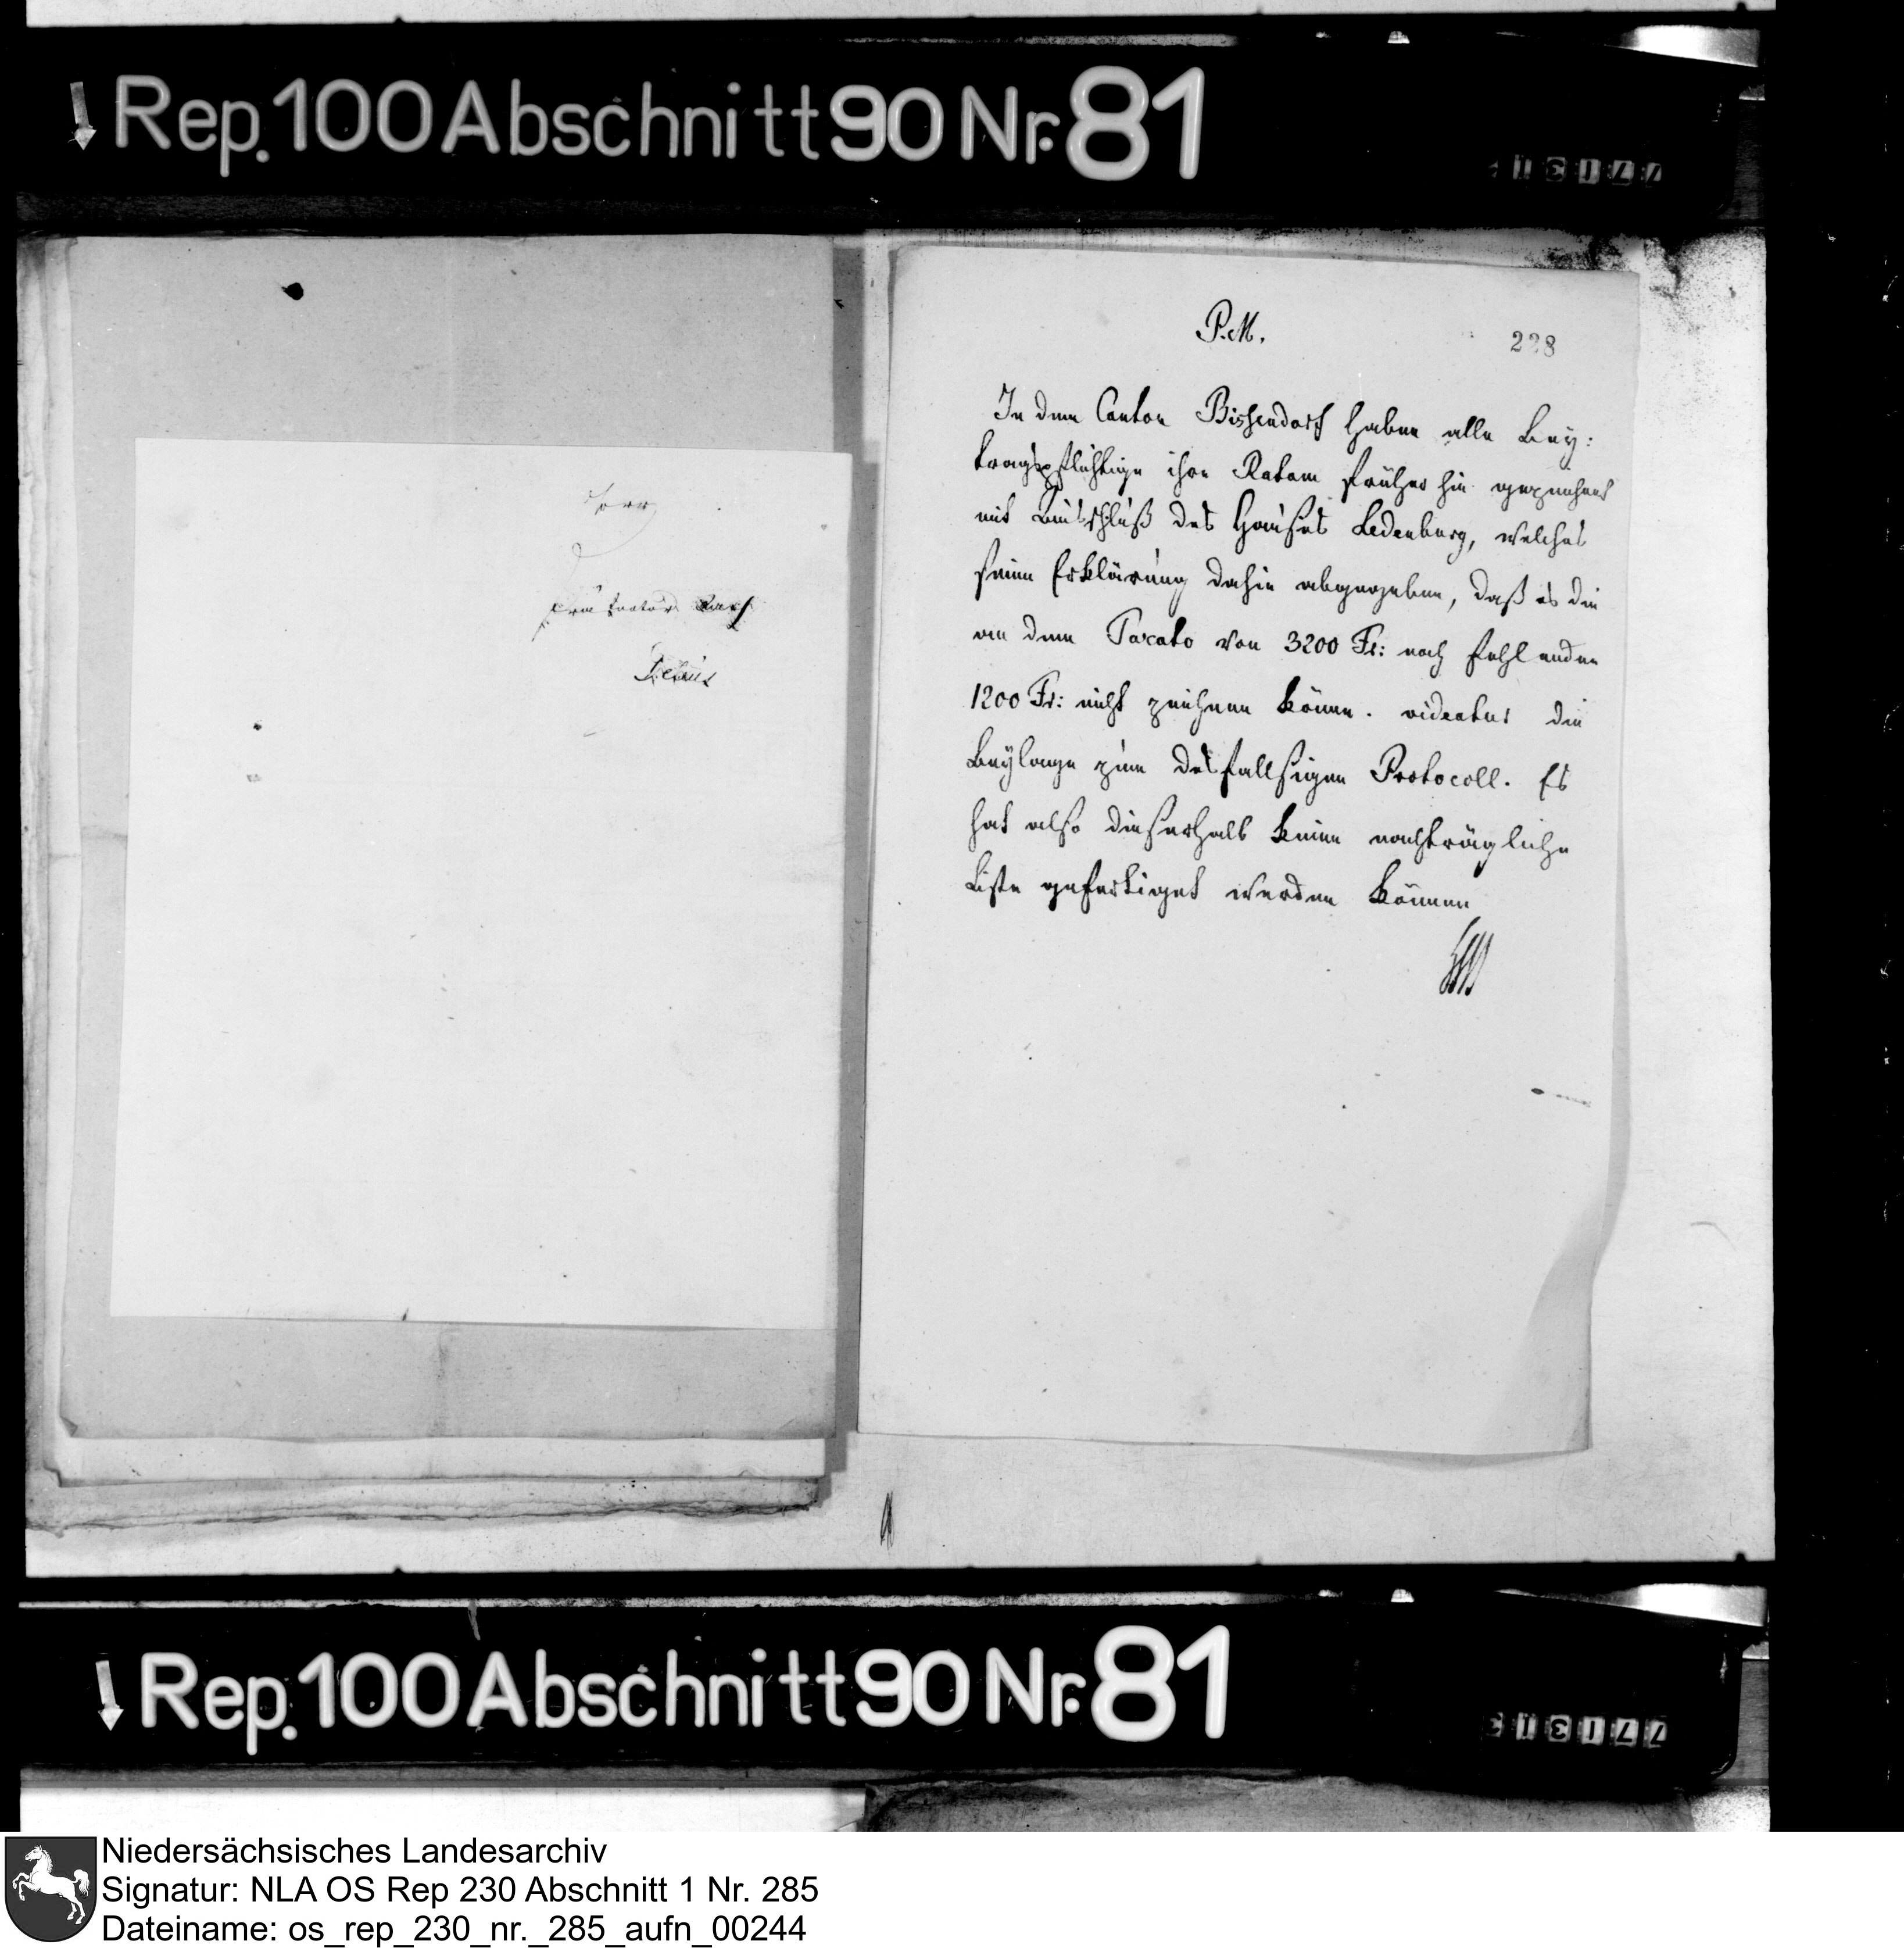 Rep. 100 Abschnitt 90 Nr. 81
P. M.
228
In dem Canton Bissendorf haben alle Bey:
tragspflichtige ihre Ratam früher hin gezeichnet
mit Ausschluß des Hauses Ledenburg, welches
seine Erklärung dahin abgegeben, daß es die
an dem Taxato von 3200 Fr: noch fehlenden
1200 Fr: nicht zeichnen könne. videatur die
Beylage zum desfallsigen Protocoll. Es
hat also dieserhalb keine nachträgliche
Liste gefertiget werden können
Herr
Rep. 100 Abschnitt 90 Nr. 81
Niedersächsisches Landesarchiv
Signatur: NLA OS Rep 230 Abschnitt 1 Nr. 285
Dateiname: os_rep_230_nr._285_aufn_00244